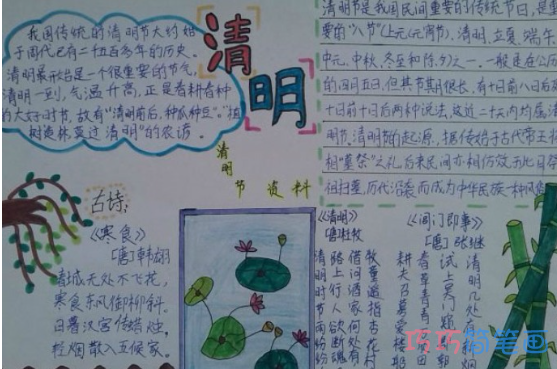 我国传统的清明节大约始
于周代,已有二千五百多年的历史。
清明最开始是一个很重要的节气,
清明一到,气温升高,正是春耕春种
的大好时节,故有“清明前后,种瓜种豆”。“植
树造林,莫过清明”的农谚。
清明
清明节是我国民间重要的传统节日,是
要的“八节”(上元(元宵)、清明、立夏、端午、
中元、中秋、冬至和除夕)之一。一般是在公历
的四月五日,但其节期很长,有十日前八日后
十日前十日后两种说法,这近二十天内均属
明节。清明节的起源,据传始于古代帝王
相“墓祭”之礼,后来民间亦相仿效,于此日
祖扫墓,历代沿袭而成为中华民族一种风俗
清明节资料
古诗:
《寒食》
[唐]韩翃
春城无处不飞花,
寒食东风御柳斜。
日暮汉宫传蜡烛,
轻烟散入五侯家。
《清明》
[唐]杜牧
清明时节雨纷
路上行人欲断魂
借问酒家何处有
牧童遥指杏花村
《阊门即事》
[唐]张继
耕夫召募爱楼船
春草青青万
试上吴门
清明几处
巧巧简笔画